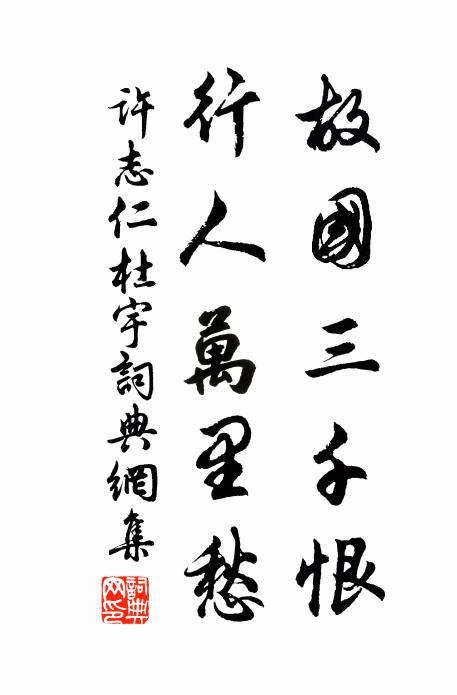 故國三千恨
行人萬里愁
許志仁杜宇詞典網集
詞典網印